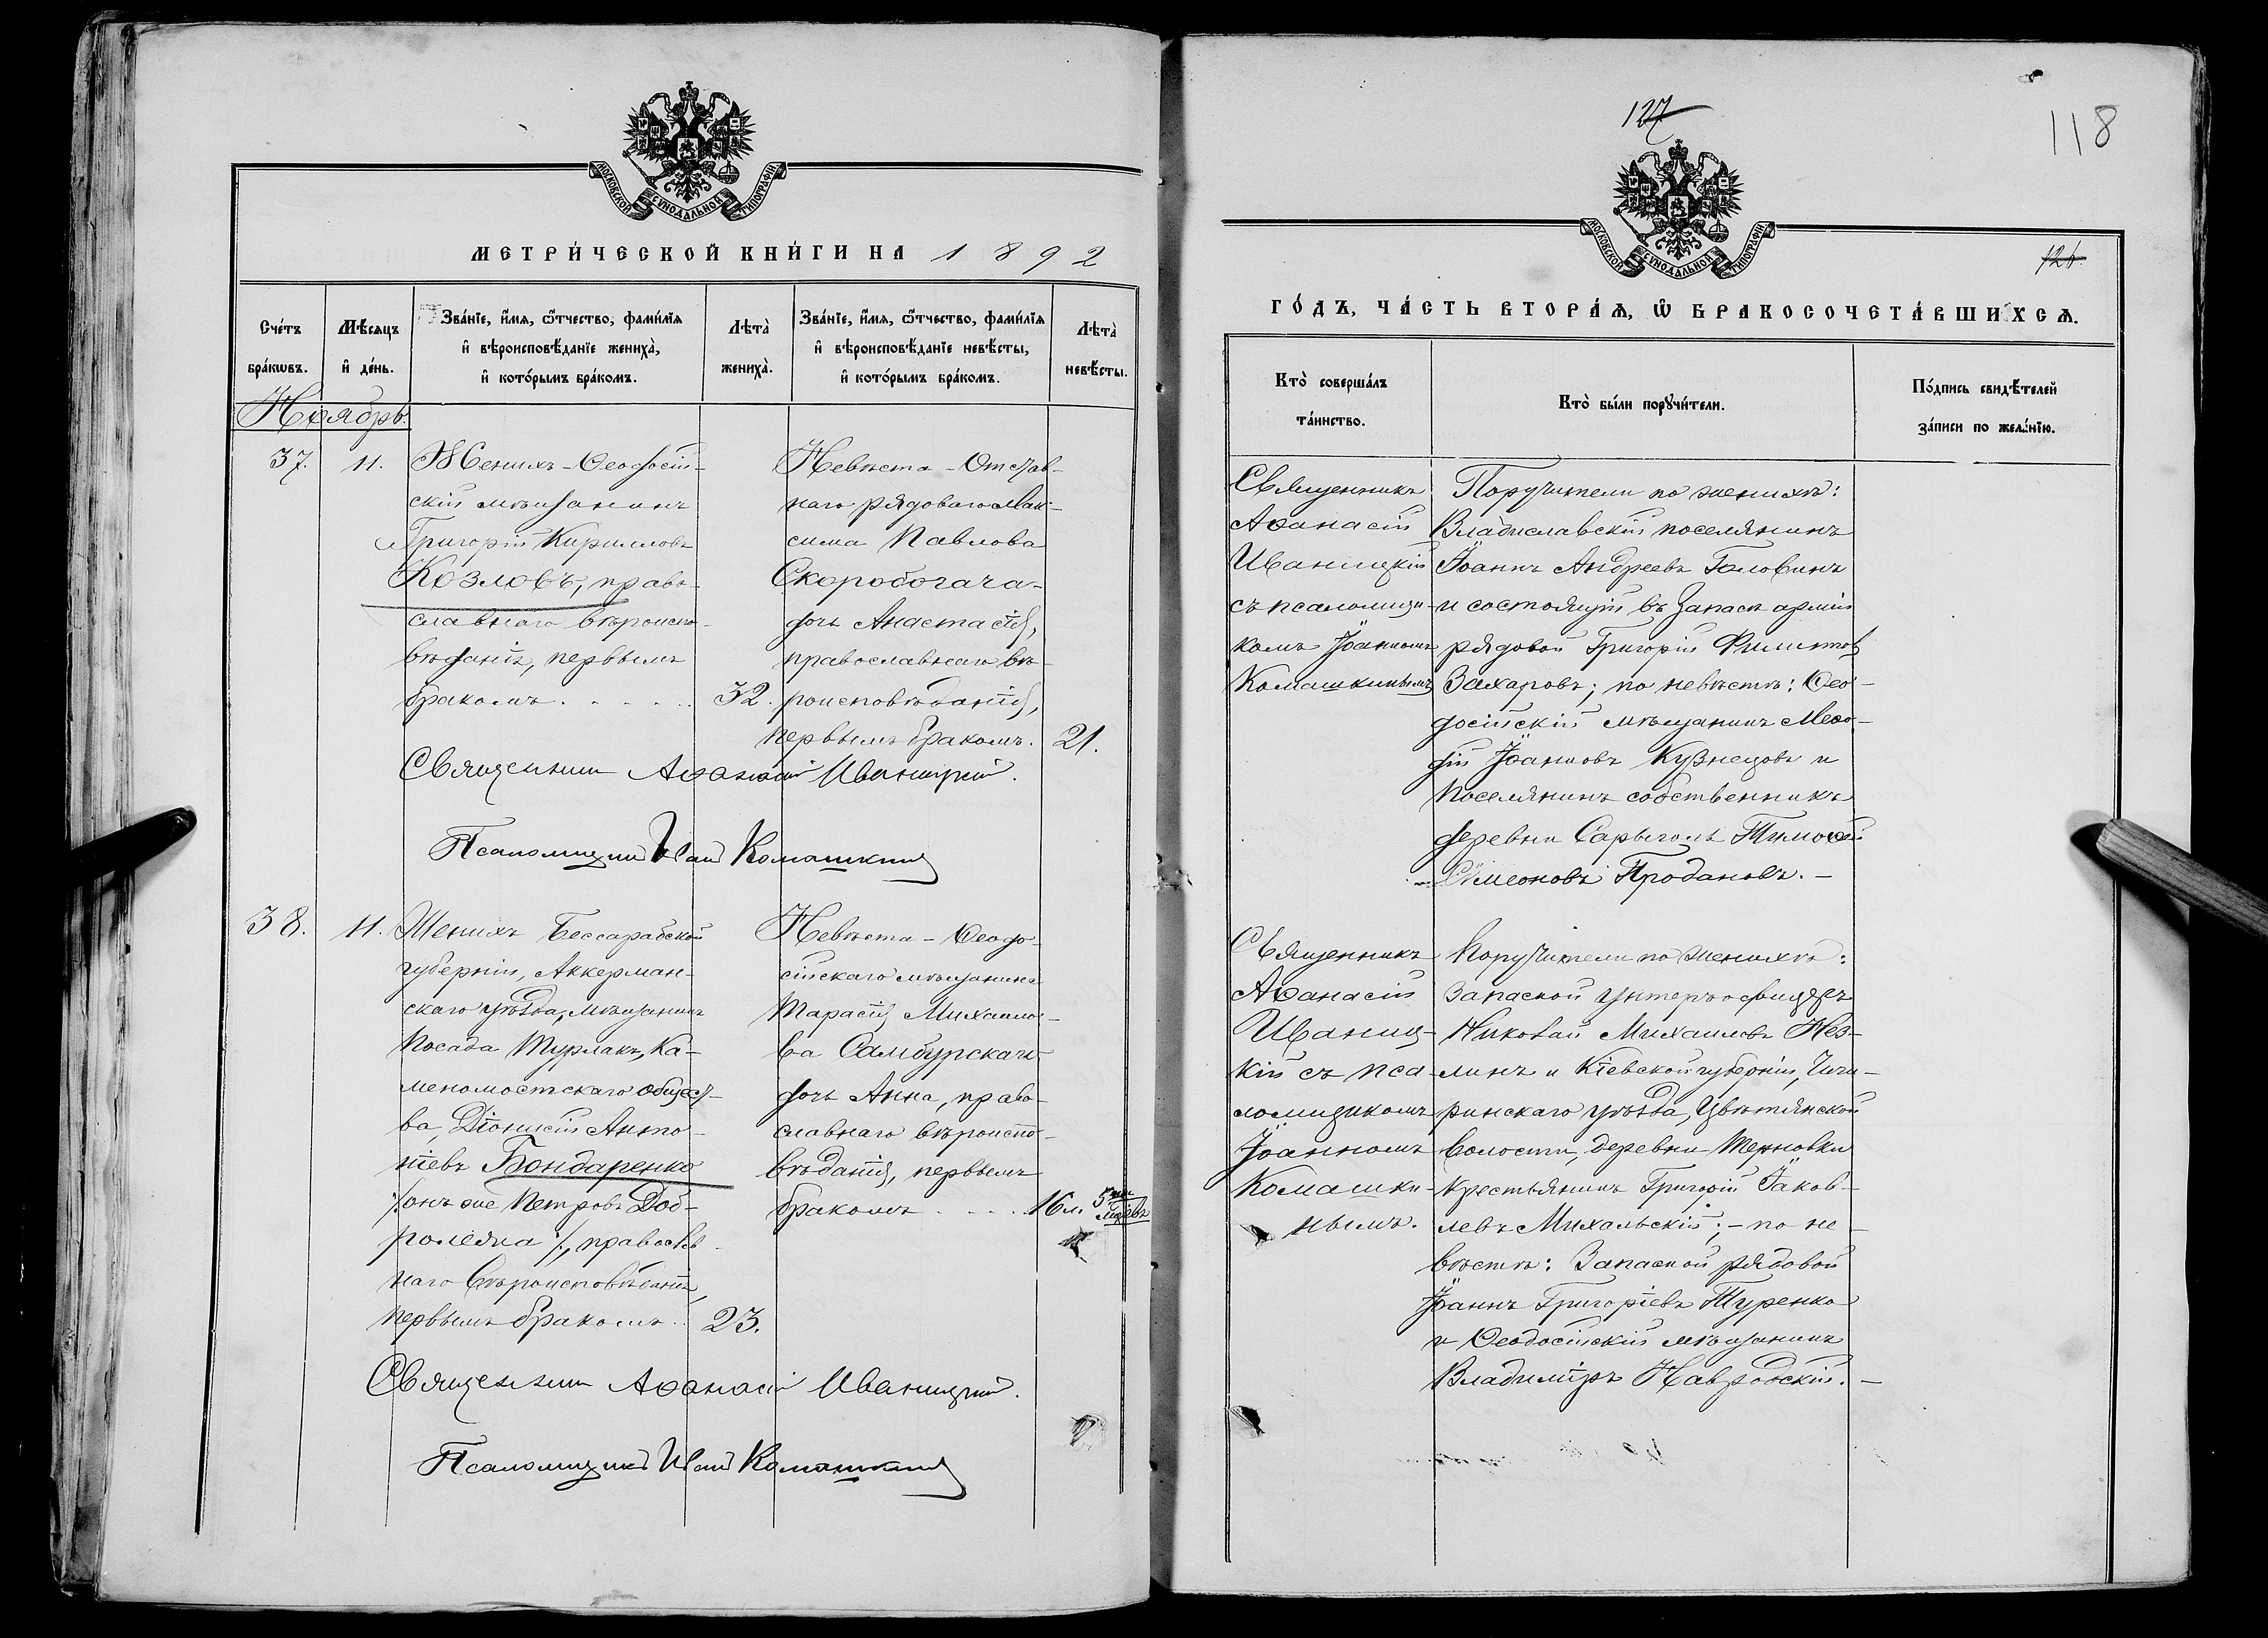 МОСКОВСКОЙ СѴНОДАЛЬНОЙ ТИПОГРАФІИ
МЕТРИ́ЧЕСКОЙ КНИ́ГИ НА 1892
Сче́тъ бра́кѡвъ.
Мѣ́сяцъ и҆ де́нь.
Зва́нїе, и҆́мѧ, ѻ҆́тчество, фами́лїѧ
и҆ вѣроисповѣ́данїе жениха̀,
и҆ кото́рымъ бра́комъ.
Лѣта̀ жениха̀.
Зва́нїе, и҆́мѧ, ѻ҆́тчество, фами́лїѧ
и҆ вѣроисповѣ́данїе невѣ́сты,
и҆ кото́рымъ бра́комъ.
Лѣта̀ невѣ́сты.
Ноябрь.
37.
11.
Женихъ - Ѳеодосій-
скій мѣщанинъ
Григорій Кирилловъ
Козловъ, право-
славнаго вѣроиспо-
вѣданія, первымъ
бракомъ. . . . . .
32.
Невѣста - Отстав-
наго рядоваго Мак-
сима Павлова
Скоробогача-
дочь Анастасія,
православнаго вѣ-
роисповѣданія,
первымъ бракомъ.
21.
Священникъ Аѳанасій Иваницкій.
Псаломщикъ Иван Комашкинъ
38.
11.
Женихъ Бессарабской
губерніи, Аккерман-
скаго уѣзда, мѣщанинъ
посада Турлакъ, Ка-
меномостскаго общест-
ва, Діонисій Анто-
ніевъ Бондаренко
/:онъ же Петровъ Доб-
ролежа:/, православ-
наго вѣроисповѣданія,
первымъ бракомъ..
23.
Невѣста - Ѳеодо-
сійскаго мѣщанина
Тарасія Михайло-
ва Самбурскаго
дочь Анна, право-
славнаго вѣроиспо-
вѣданія, первымъ
бракомъ . . . .
16 л. 5ти мѣсяцевъ
Священникъ Аѳанасій Иваницкій.
Псаломщикъ Иван Комашкинъ
127
118
126.
МОСКОВСКОЙ СѴНОДАЛЬНОЙ ТИПОГРАФІИ
ГО́ДЪ, ЧА́СТЬ ВТОРА́Ѧ, Ѽ БРАКОСОЧЕТА́ВШИХСѦ.
Кто̀ соверша́лъ
та́инство.
Кто̀ бы́ли порꙋчи́тели.
По́дпись свидѣ́телей
за́писи по жела́нїю.
Священникъ
Аѳанасій
Иваницкій
съ псаломщи-
комъ Іоанномъ
Комашкинымъ
Поручители по женихѣ:
Владиславскій поселянинъ
Іоаннъ Андреевъ Головинъ
и состоящій въ запасѣ арміи
рядовой Григорій Филиппов
Захаровъ; по невѣстѣ: Ѳео-
досійскій мѣщанинъ Меѳо-
дій Іоанновъ Кузнецовъ и
поселянинъ собственникъ
деревни Сарыголь Тимоѳей
Симеоновъ Продановъ. -
Священникъ
Аѳанасій
Иваниц-
кій съ пса-
ломщикомъ
Іоанномъ
Комашки-
нымъ.
Поручители по женихѣ:
Запасной унтеръ офицеръ
Николай Михаиловъ Нез-
линъ и Кіевской губерніи, Чиги-
ринскаго уѣзда, Цвѣтлянской
волости, деревни Терновки
крестьянинъ Григорій Іаков-
левъ Михальскій; - по не-
вѣстѣ: Запасной рядовой
Іоаннъ Григоріевъ Туренко
и Ѳеодосійскій мѣщанинъ
Владиміръ Навродскій. -